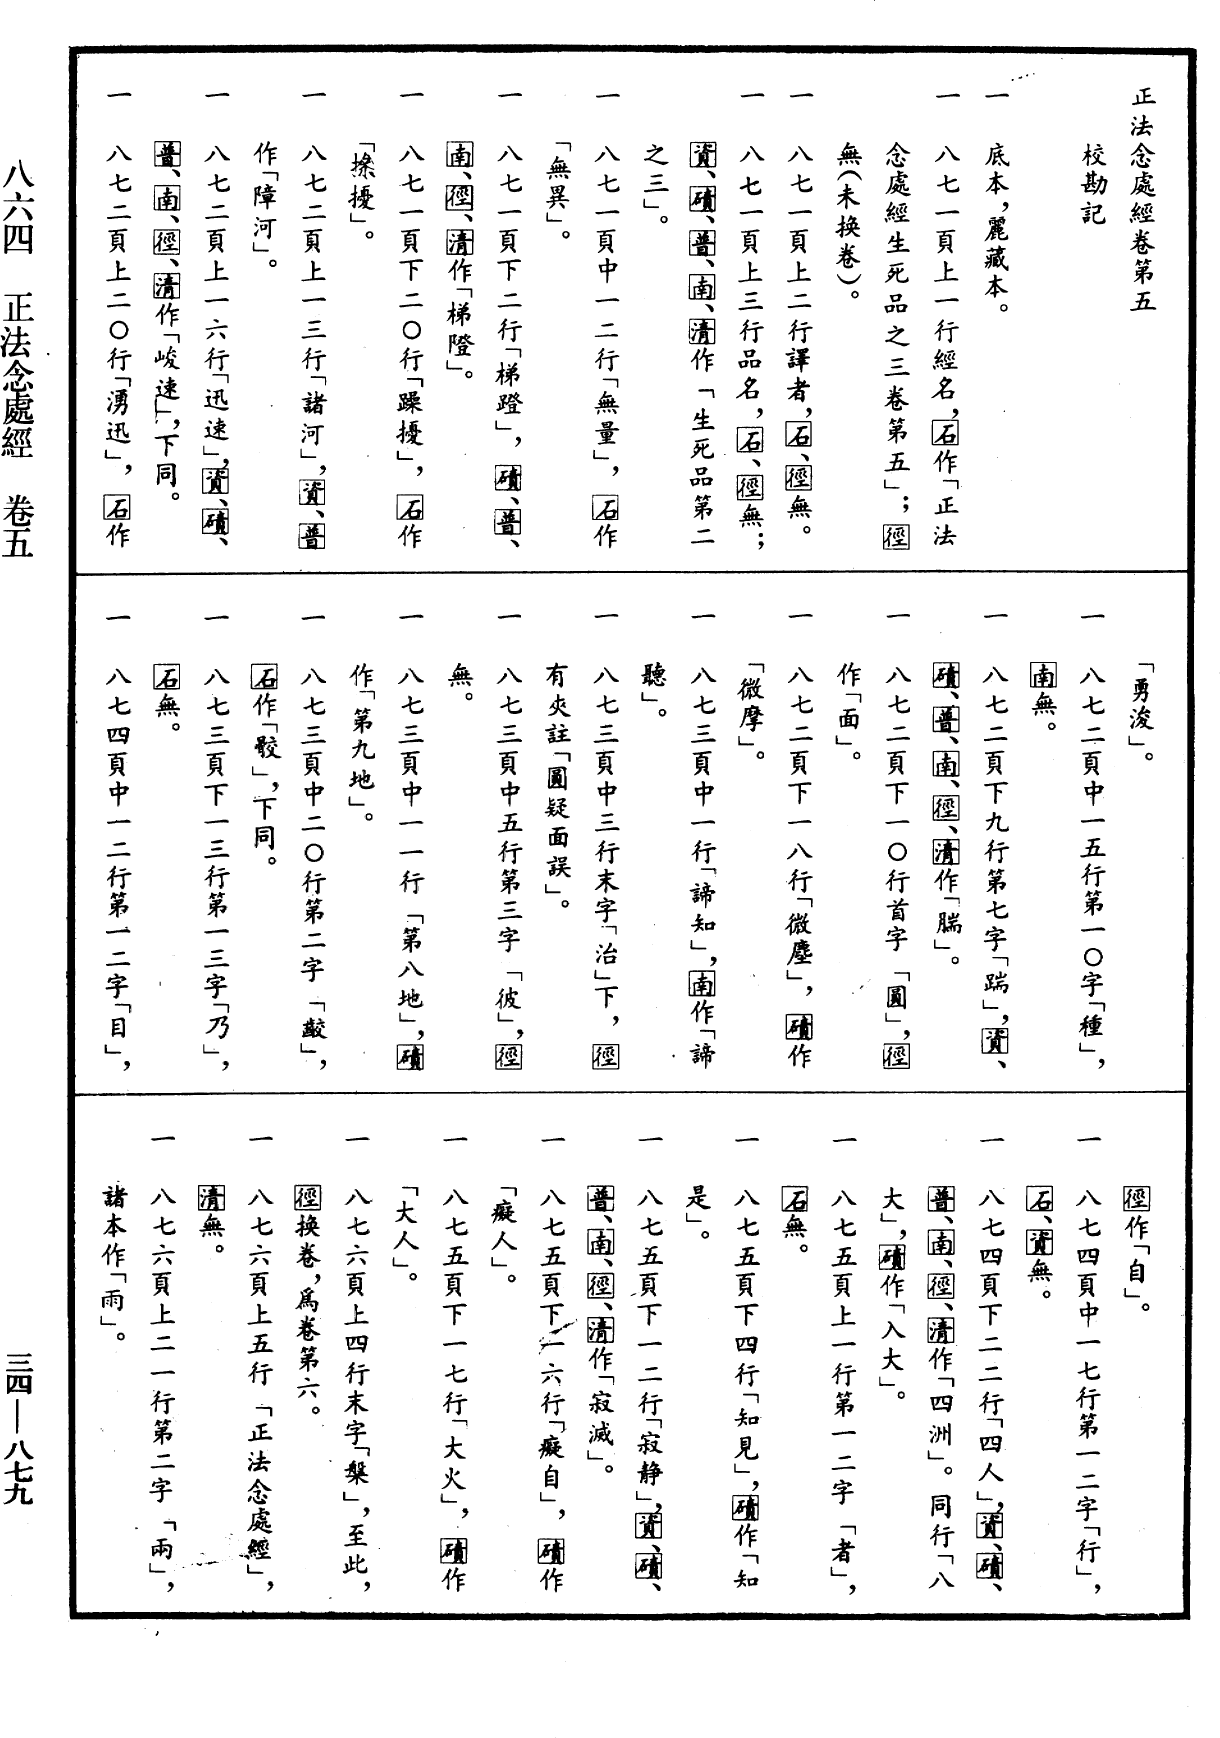 正法念處經卷第五
校勘記
一 底本，麗藏本。
一 八七一頁上一行經名，石作「正法
念處經生死品之三卷第五」；徑
無（未换卷）。
一 八七一頁上二行譯者，石、徑無。
一 八七一頁上三行品名，石、徑無；
資、磧、普、南、清作「生死品第二
之三」。
一 八七一頁中一二行「無量」，石作
「無異」。
一 八七一頁下二行「梯蹬」，磧、普、
南、徑、清作「梯隥」。
一 八七一頁下二〇行「躁擾」，石作
「搡擾」。
一 八七二頁上一三行「諸河」，資、普
作「障河」。
一 八七二頁上一六行「迅速」，資、磧、
普、南、徑、清作「峻速」，下同。
一 八七二頁上二〇行「湧迅」，石作
「勇浚」。
一 八七二頁中一五行第一〇字「種」，
南無。
一 八七二頁下九行第七字「踹」，資、
磧、普、南、徑、清作「腨」。
一 八七二頁下一〇行首字「圓」，徑
作「面」。
一 八七二頁下一八行「微塵」，磧作
「微摩」。
一 八七三頁中一行「諦知」，南作「諦
聽」。
一 八七三頁中三行末字「治」下，徑
有夾註「圓疑面誤」。
一 八七三頁中五行第三字「彼」，徑
無。
一 八七三頁中一一行「第八地」，磧
作「第九地」。
一 八七三頁中二〇行第二字「齩」，
石作「骹」，下同。
一 八七三頁下一三行第一三字「乃」，
石無。
一 八七四頁中一二行第一二字「目」，
徑作「自」。
一 八七四頁中一七行第一二字「行」，
石、資無。
一 八七四頁下二二行「四人」，資、磧、
普、南、徑、清作「四洲」。同行「八
大」，磧作「入大」。
一 八七五頁上一行第一二字「者」，
石無。
一 八七五頁下四行「知見」，磧作「知
是」。
一 八七五頁下一二行「寂静」，資、磧、
普、南、徑、清作「寂滅」。
一 八七五頁下一六行「癡自」，磧作
「癡人」。
一 八七五頁下一七行「大火」，磧作
「大人」。
一 八七六頁上四行末字「槃」，至此，
徑换卷，爲卷第六。
一 八七六頁上五行「正法念處經」，
清無。
一 八七六頁上二一行第二字「兩」，
諸本作「雨」。
八六四 正法念處經 卷五
三四—八七九